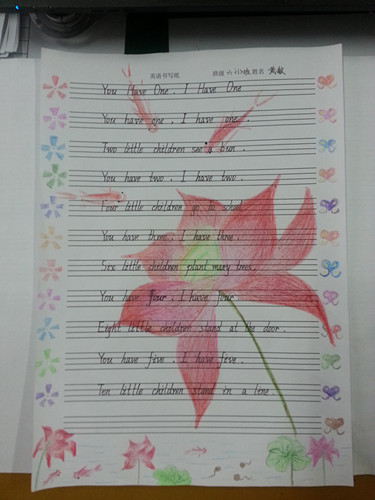 英语书写纸 班级 六(1)班 姓名 黄敏
You Have One , I Have One
You have one , I have one .
Two little children see a bun .
You have two , I have two .
Four little children go to
You have three , I have three .
Six little children plant many trees .
You have four , I have four .
Eight little children stand at the door .
You have five , I have five .
Ten little children stand in a line .